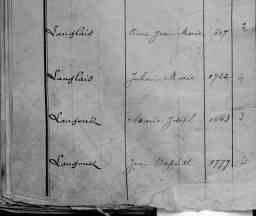 Langlais Anne Jean Marie
Langlais Julien Marie 1722 4
Langouet Marie Joseph 3
Langouet Jean Baptiste 1777